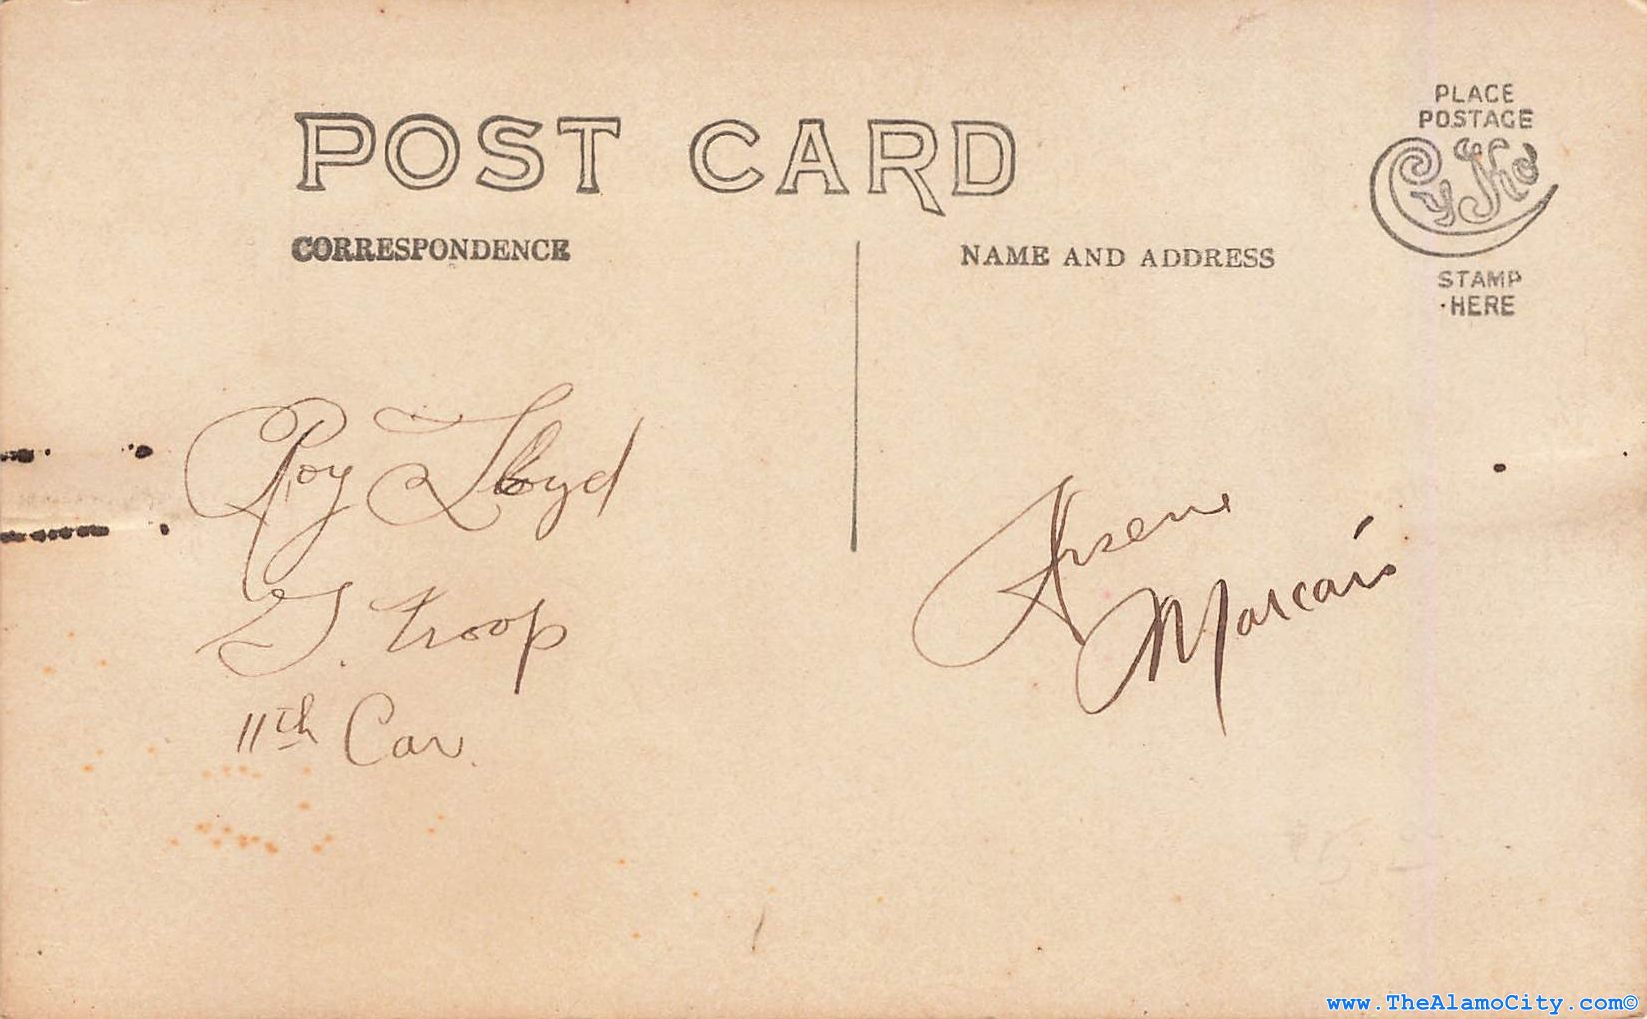 POST CARD
CORRESPONDENCE
NAME AND ADDRESS
PLACE
POSTAGE
CyKo
STAMP
HERE
Roy Lloyd
G. Troop
11th Cav.
Arsene
www.TheAlamoCity.com©